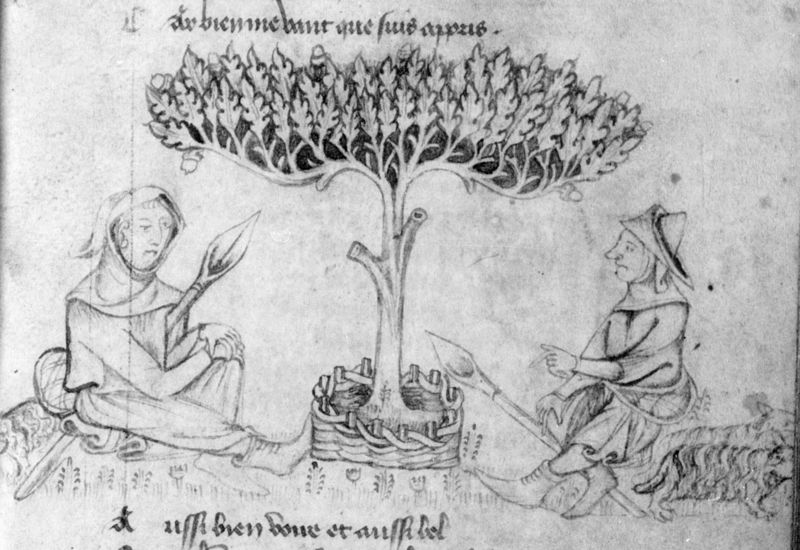 Car bien me vant que suis apris.
Aussi bien voue et aussi bel